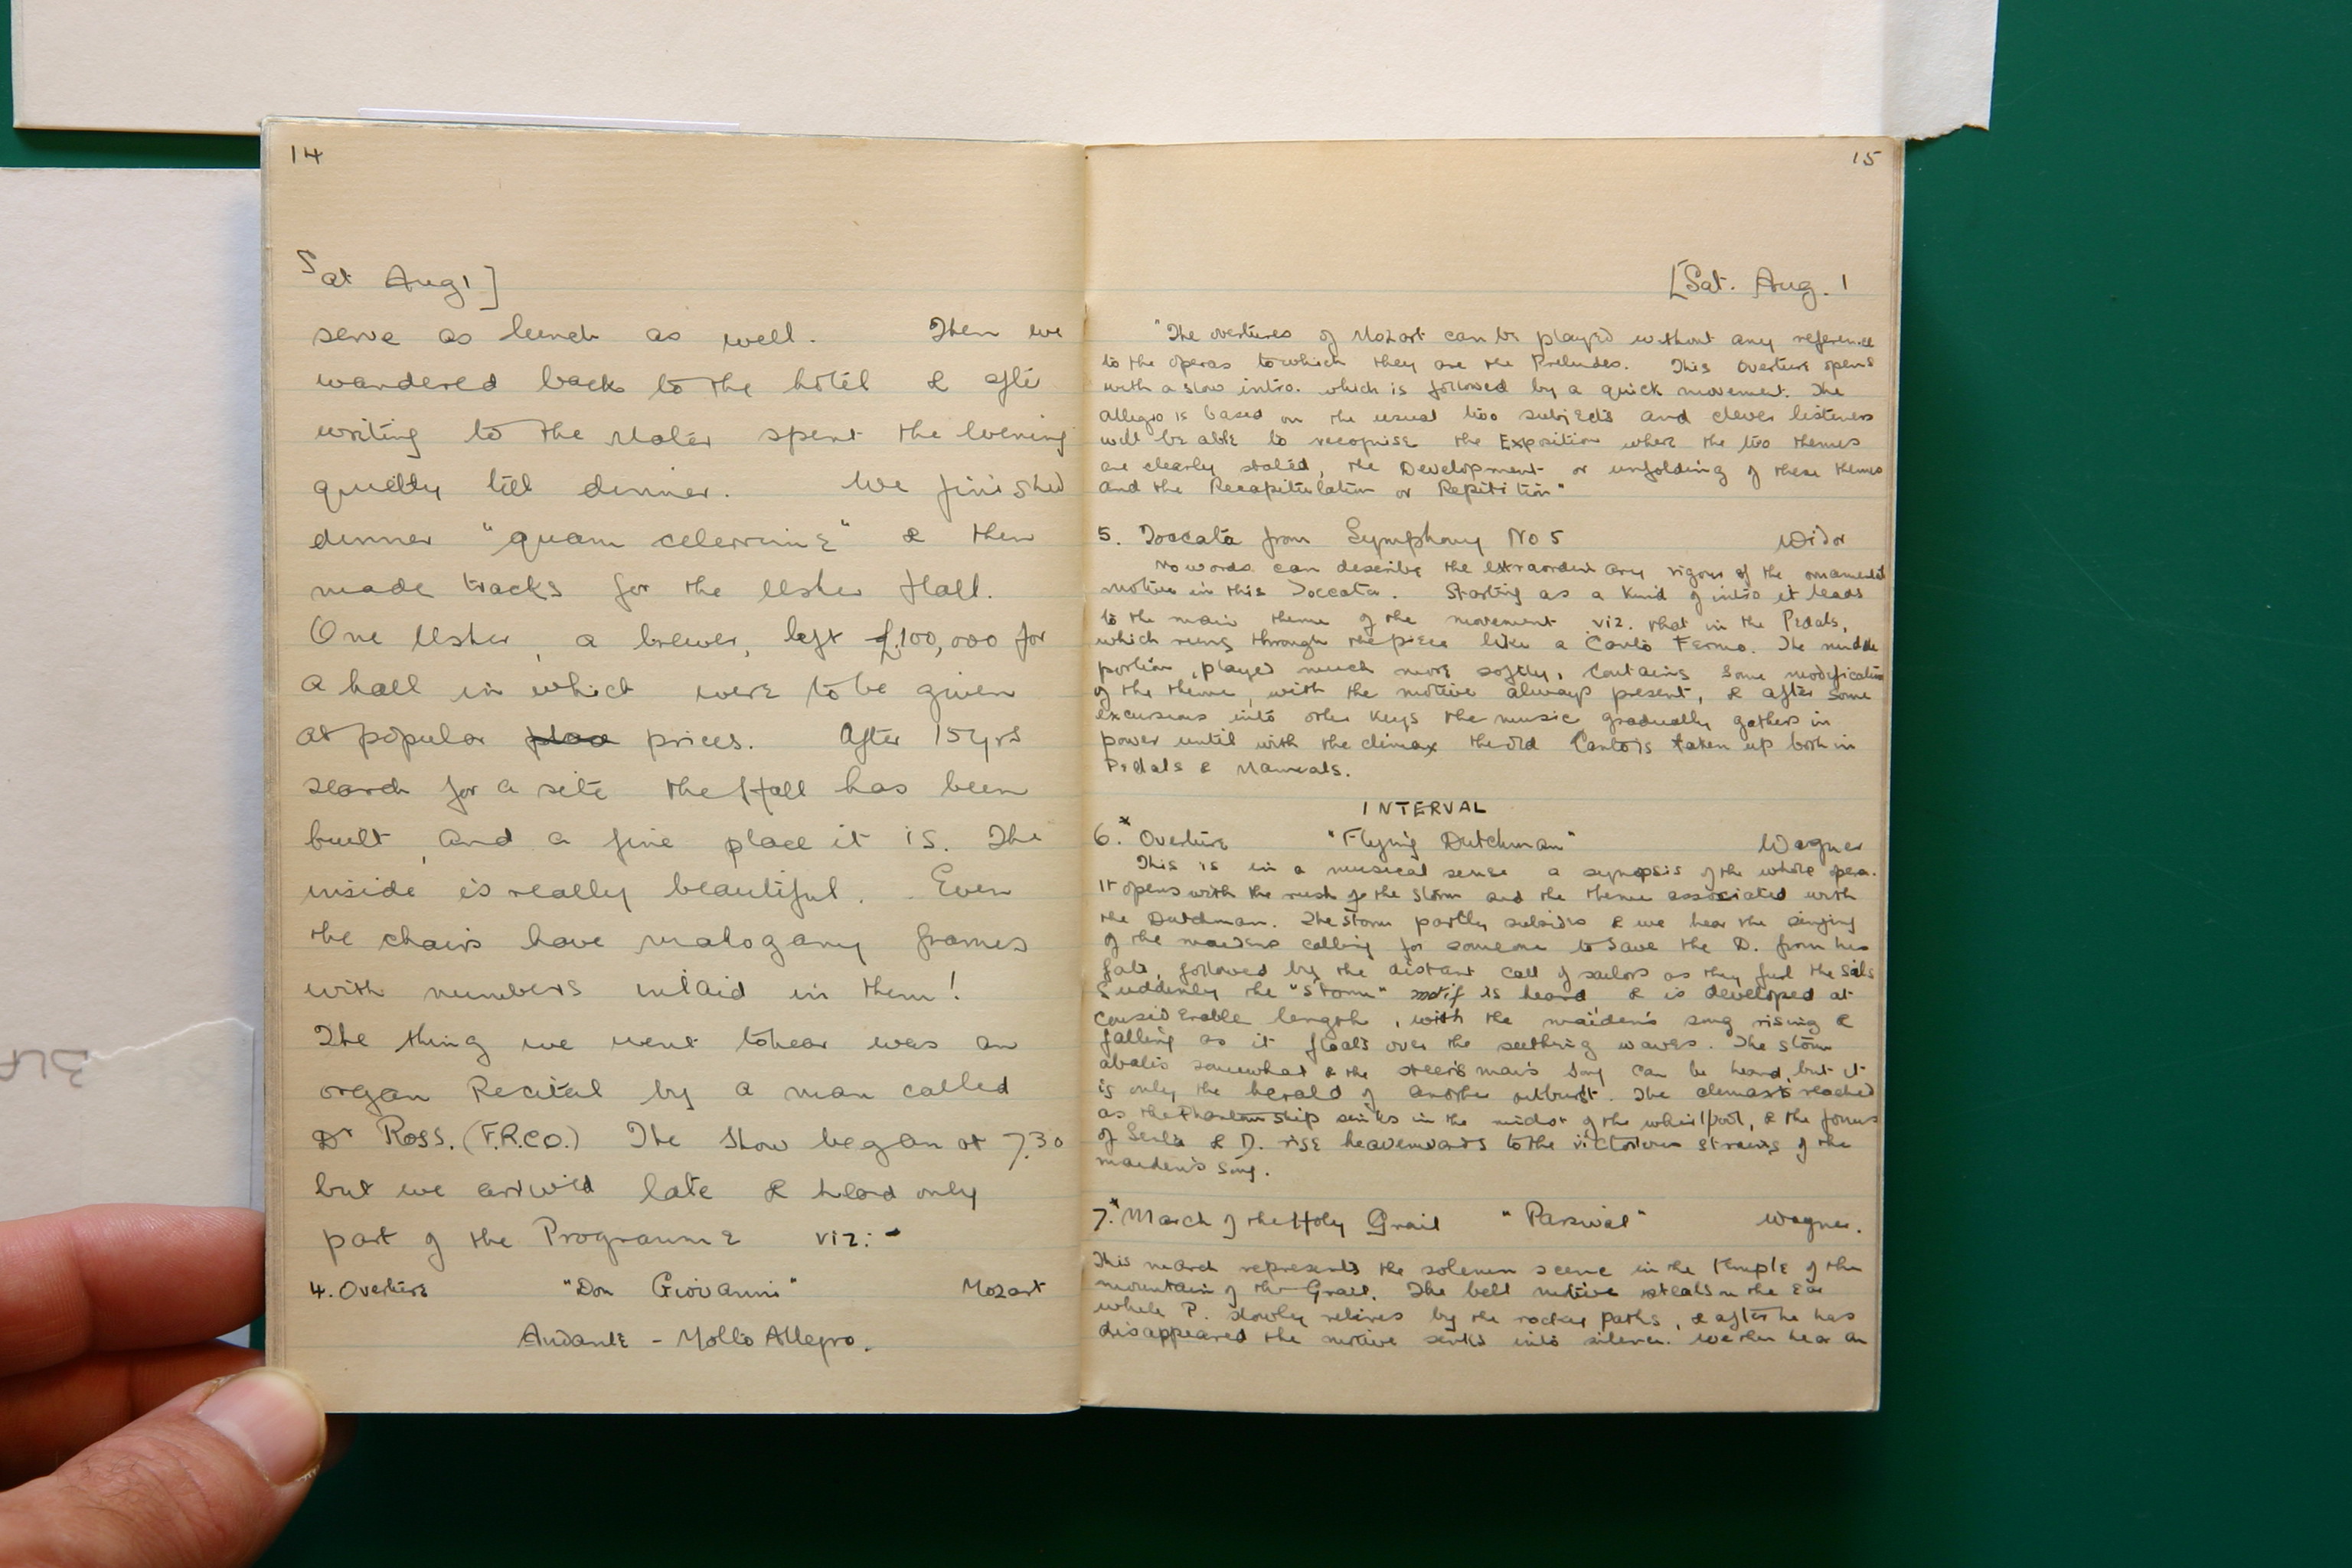 14
Sat Aug 1]
serve as lunch as well. Then we
wandered back to the hotel & after
writing to the Mater spent the evening
quietly till dinner. We finished
dinner "quam celerrime" & then
made tracks for the Usher Hall.
One Usher, a brewer, left £100,000 for
a hall in which were to be given
at popular prices. After 15 yrs
search for a site the Hall has been
built, and a fine place it is. The
inside is really beautiful. Even
the chairs have mahogany frames
with numbers inlaid in them!
The thing we went to hear was an
organ Recital by a man called
Dr Ross. (F.R.C.O.) The show began at 7.30
but we arrived late & heard only
part of the Programme viz:-
4. Overture "Don Giovanni" Mozart
Andante - Molto Allegro.
15
[Sat. Aug. 1
"The overtures of Mozart can be played without any reference
to the operas to which they are the Preludes. This Overture opens
with a slow intro. which is followed by a quick movement. The
allegro is based on the usual two subjects and clever listeners
will be able to recognise the Exposition where the two themes
are clearly stated, the Development or unfolding of these themes
and the Recapitulation or Repitition"
5. Toccata from Symphony No 5 Widor
No words can describe the extraordinary vigour of the ornamental
motive in this Toccata. Starting as a kind of intro it leads
to the main theme of the movement viz. that in the Pedals,
which rings through the piece like a Canto Fermo. The middle
portion, played much more softly, contains some modification
of the theme, with the motive always present, & after some
excursions into other keys the music gradually gathers in
power until with the climax the old Canto is taken up both in
Pedals & Manuals.
INTERVAL
6.* Overture "Flying Dutchman" Wagner
This is in a musical sense a synopsis of the whole opera.
It opens with the rush of the storm and the theme associated with
the Dutchman. The storm partly subsides & we hear the singing
of the maidens calling for someone to save the D. from his
fate, followed by the distant call of sailors as they furl the sails
Suddenly the "storm" motif is heard & is developed at
considerable length, with the maiden's song rising &
falling as it floats over the seething waves. The storm
abates somewhat & the steersman's song can be heard, but it
is only the herald of another outburst. The climax is reached
as the Phantom ship sinks in the midst of the whirlpool, & the forms
of Senta & D. rise heavenwards to the victorious strains of the
maiden's song.
7.* March of the Holy Grail "Parsival" Wagner.
This march represents the solemn scene in the temple of the
mountain of the Grail. The bell motive steals on the ear
while P. slowly retires by the rocky paths, & after he has
disappeared the motive sinks into silence. We then hear an